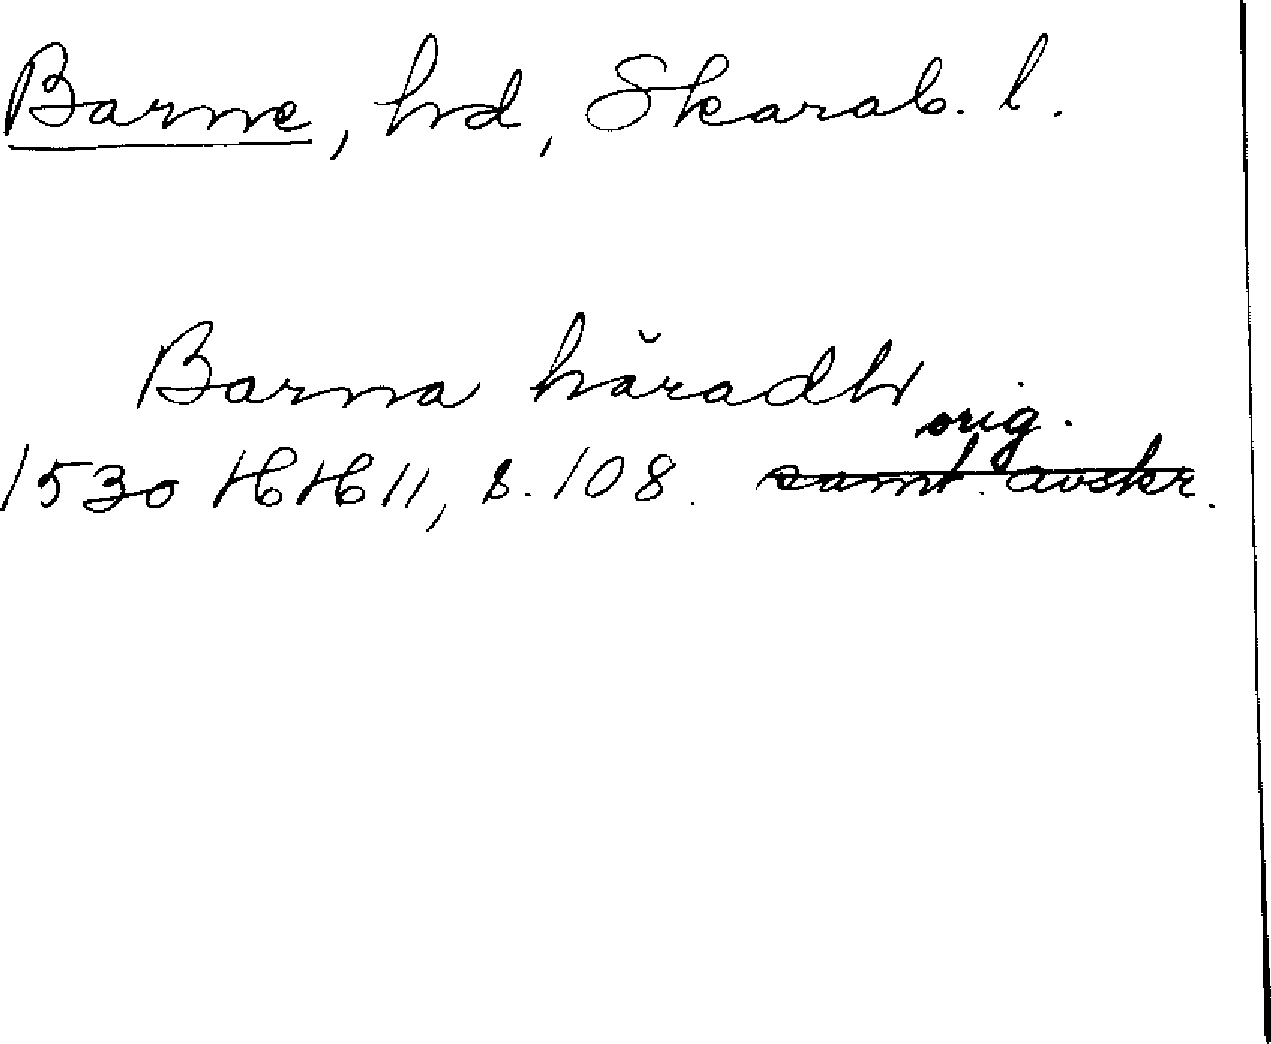 Barne, hd, Skarab. l.
Barna hăradh
orig.
1530 HH 11, s. 108. samt. avskr.